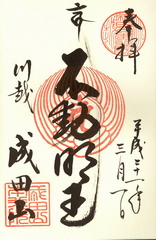 奉拝
平成三十一年
三月一日
不動明王
川越
成田山